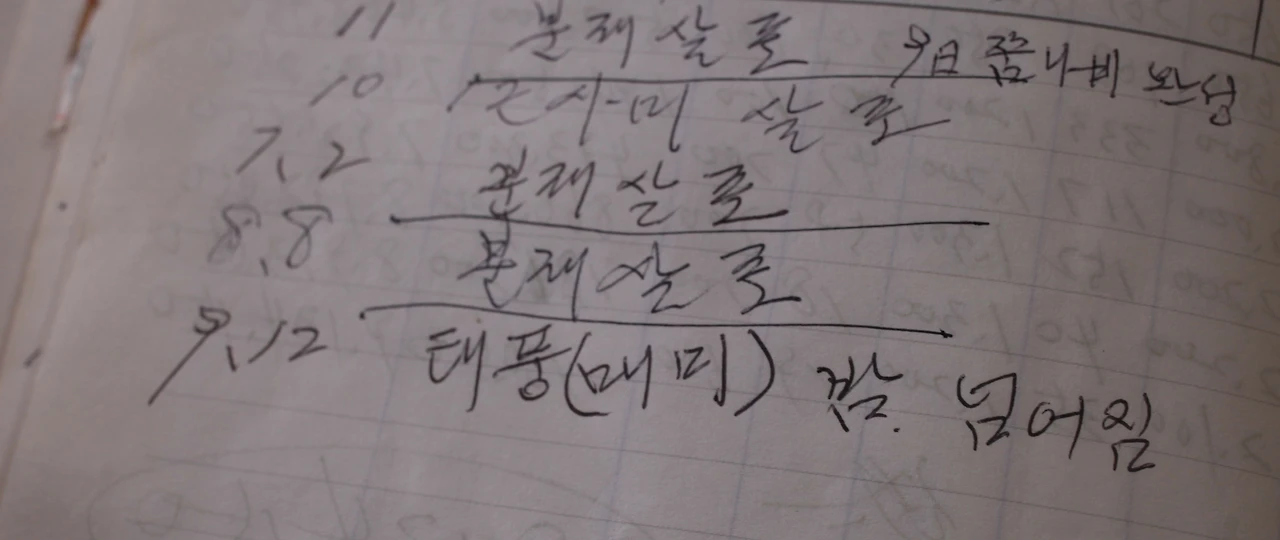 11 분재 살포 9日 쫌나비 완성
10 근사미 살포
7, 2 분재 살포
8, 8 분재 살포
9, 12 태풍(매미) 깜. 넘어임